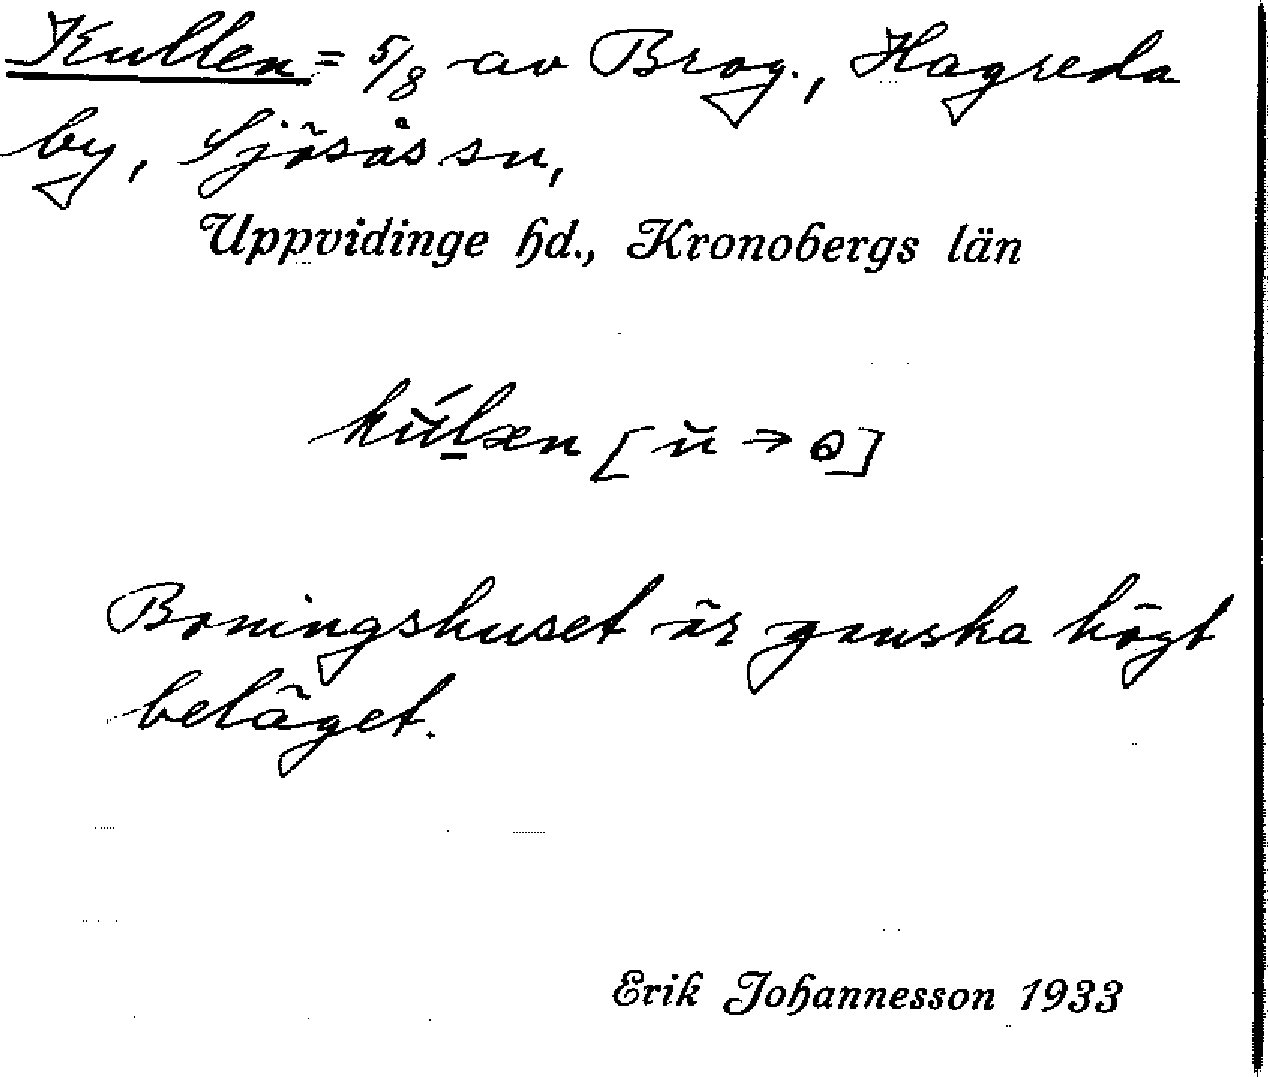 Kullen = 5/8 av Brog., Hagreda
by, Sjösås sn,
Uppvidinge hd., Kronobergs län
kŭ́l̠æn [ŭ → ɵ]
Boningshuset är ganska högt
beläget.
Erik Johannesson 1933